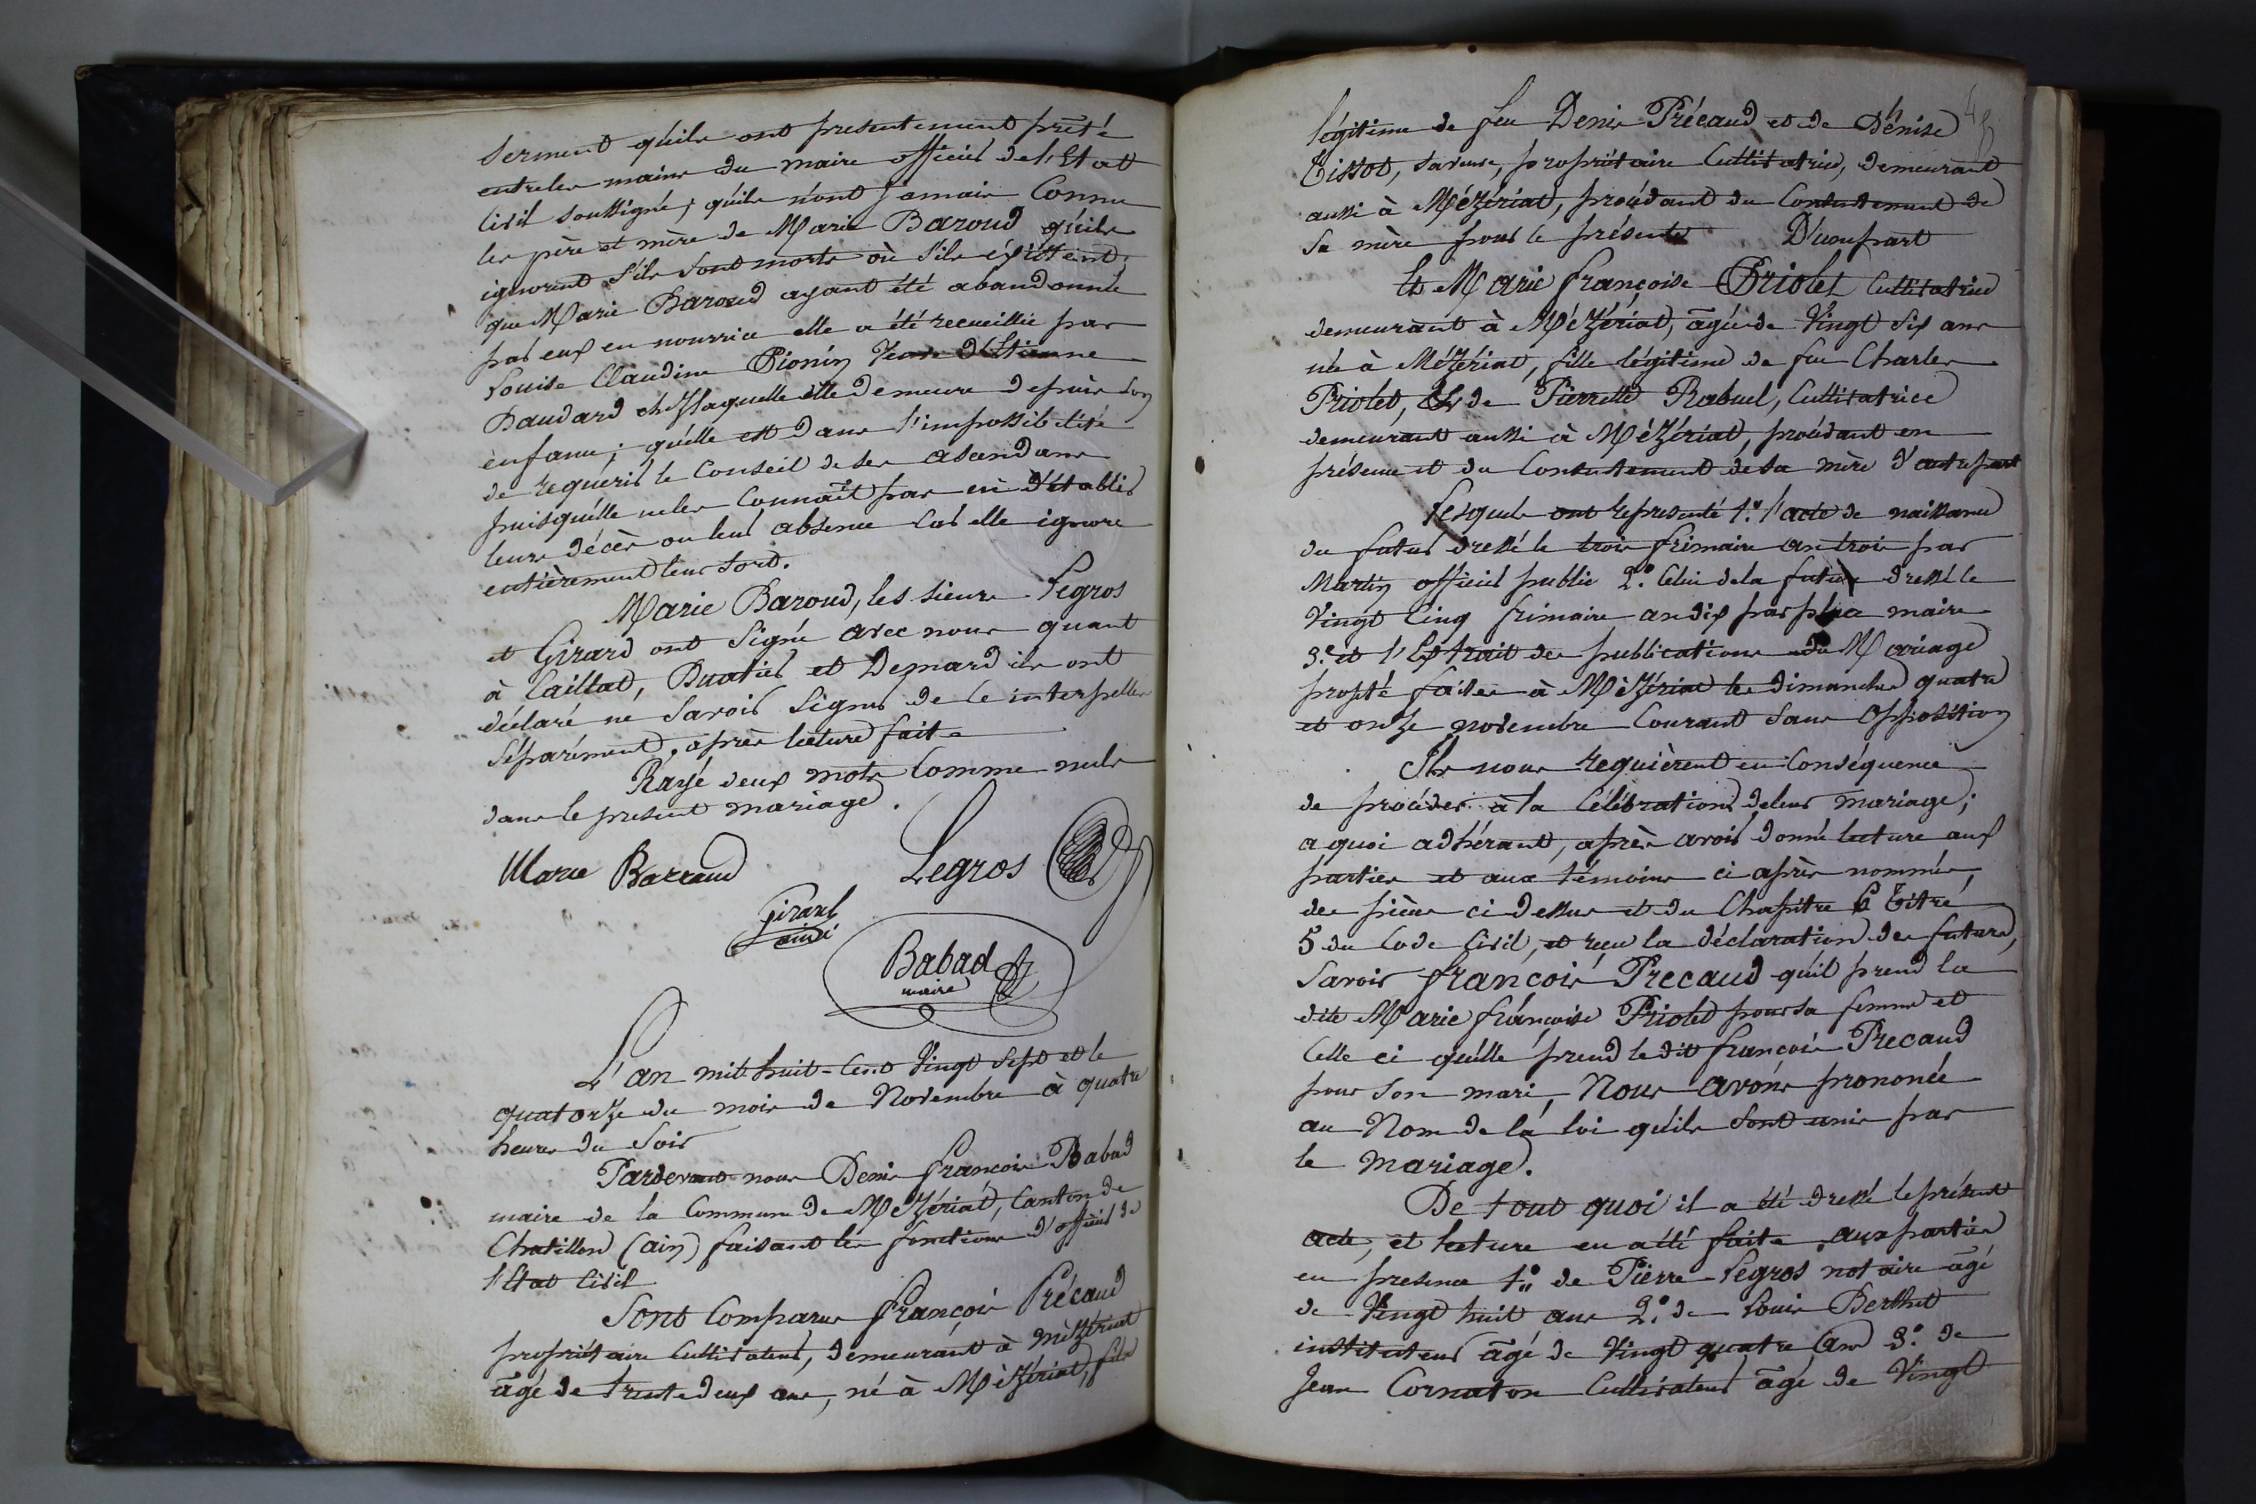 serment qu'ils ont presentement prêté
entre les mains du maire officier de l'Etat
Civil soussigné; qu'ils n'ont jamais Connu
les père et mère de Marie Baroud qu'ils
ignorent s'ils sont morts où s'ils éxistent;
que Marie Baroud ayant été abandonnée
par eux en nourrice elle a été recueillie par
Louise Claudine Pionin Veuve d'Etienne
Baudard chez laquelle elle demeure depuis son
enfance; qu'elle est dans l'impossibilité
de requerir le Conseil de ses asendans
puisqu'elle ne les Connaît pas ni d'établir
leurs décès ou leur absence Car elle ignore
entièrement leur sort.
Marie Baroud, les sieurs Legros
et Girard ont signé avec nous quant
à Caillat, Buatier et Demard ils ont
déclaré ne savoir signer de ce interpellés
séparément, après lecture faite
Rayé deux mots Comme nuls
dans le présent mariage.
Marie Barraud
Legros
Girard
Babad
maire
L'an mil huit-Cent Vingt Sept et le
quatorze du mois de Novembre à quatre
heures du Soir
Pardevant nous Denis françois Babad
maire de la Commune de Mézériat, Canton de
Chatillon (ain) faisant les fonctions d'officier de
l'Etat Civil
Sont Comparus françois Précaud
propriétaire Cultivateur, demeurant à Mézériat
âgé de trente deux ans, né à Mézériat, fils
légitime de feu Denis Précaud et de Dénise
Tissot, sa veuve, propriétaire Cultivatrice, demeurant
aussi à Mézériat, procédant du Consentement de
sa mère pour le présente D'uonpart
Et Marie françoise Priolet Cultivatrice
demeurant à Mézériat, âgée de Vingt six ans
née à Mézériat, fille légitime de feu Charles
Priolet, Et de Pierrette Rabuel, Cultivatrice
demeurant aussi à Mézériat, procédant en
présence et du Consentement de sa mère d'autre part
Lesquels ont représenté 1.° l'acte de naissance
du futur dressé le trois frimaire an trois par
Martin officier public 2.° Celui de la future dressé le
Vingt Cinq frimaire an dix par maire
3.° et l'Extrait des publications du Mariage
projeté faites à Mézériat les dimanches quatre
et onze novembre Courant sans Opposition
Ils nous requièrent en Conséquence
de procéder à la Célébration de leur mariage;
a quoi adhérant, après avoir donné lecture aux
parties et aux témoins ci après nommés,
des pièces ci dessus et du Chapitre 6 Titre
5 du Code Civil, et reçu la déclaration des futurs,
Savoir françois Precaud qu'il prend la
dite Marie françoise Priolet pour sa femme et
Celle ci qu'elle prend le dit françois Precaud
pour son mari, Nous avons prononcé
au Nom de la loi qu'ils sont unis par
le mariage.
De tout quoi il a été dressé le présent
acte, et lecture en a été faite aux parties
en presence 1.° de Pierre Legros notaire âgé
de Vingt huit ans 2.° de Louis Berthet
instituteur âgé de Vingt quatre ans 3.° de
Jean Cornaton Cultivateur âgé de Vingt